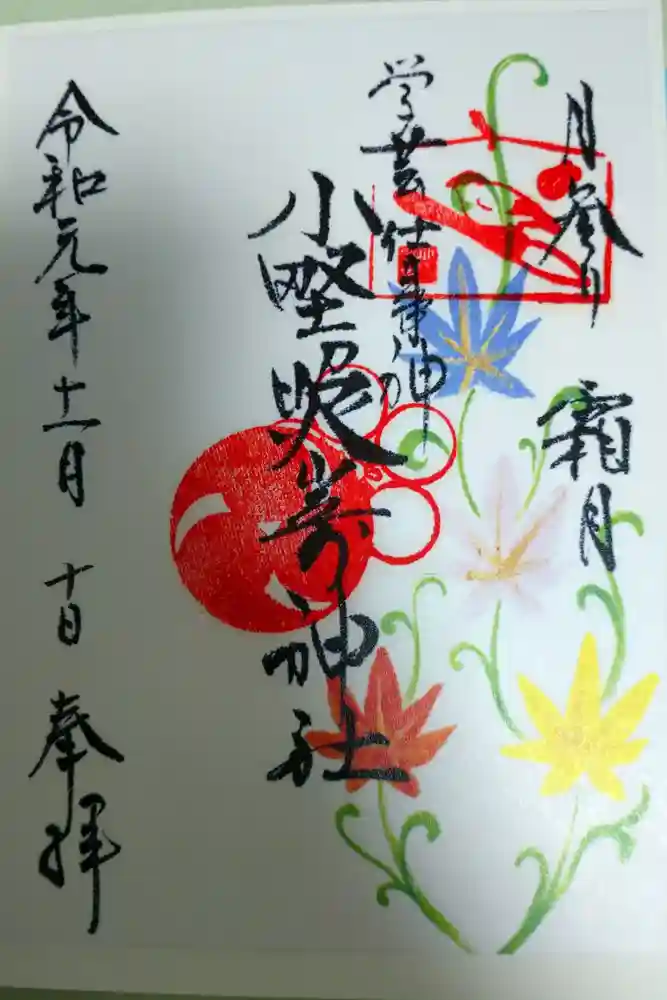 月参り 霜月
学芸仕事の神
小野照崎神社
令和元年十一月 十日 奉拝